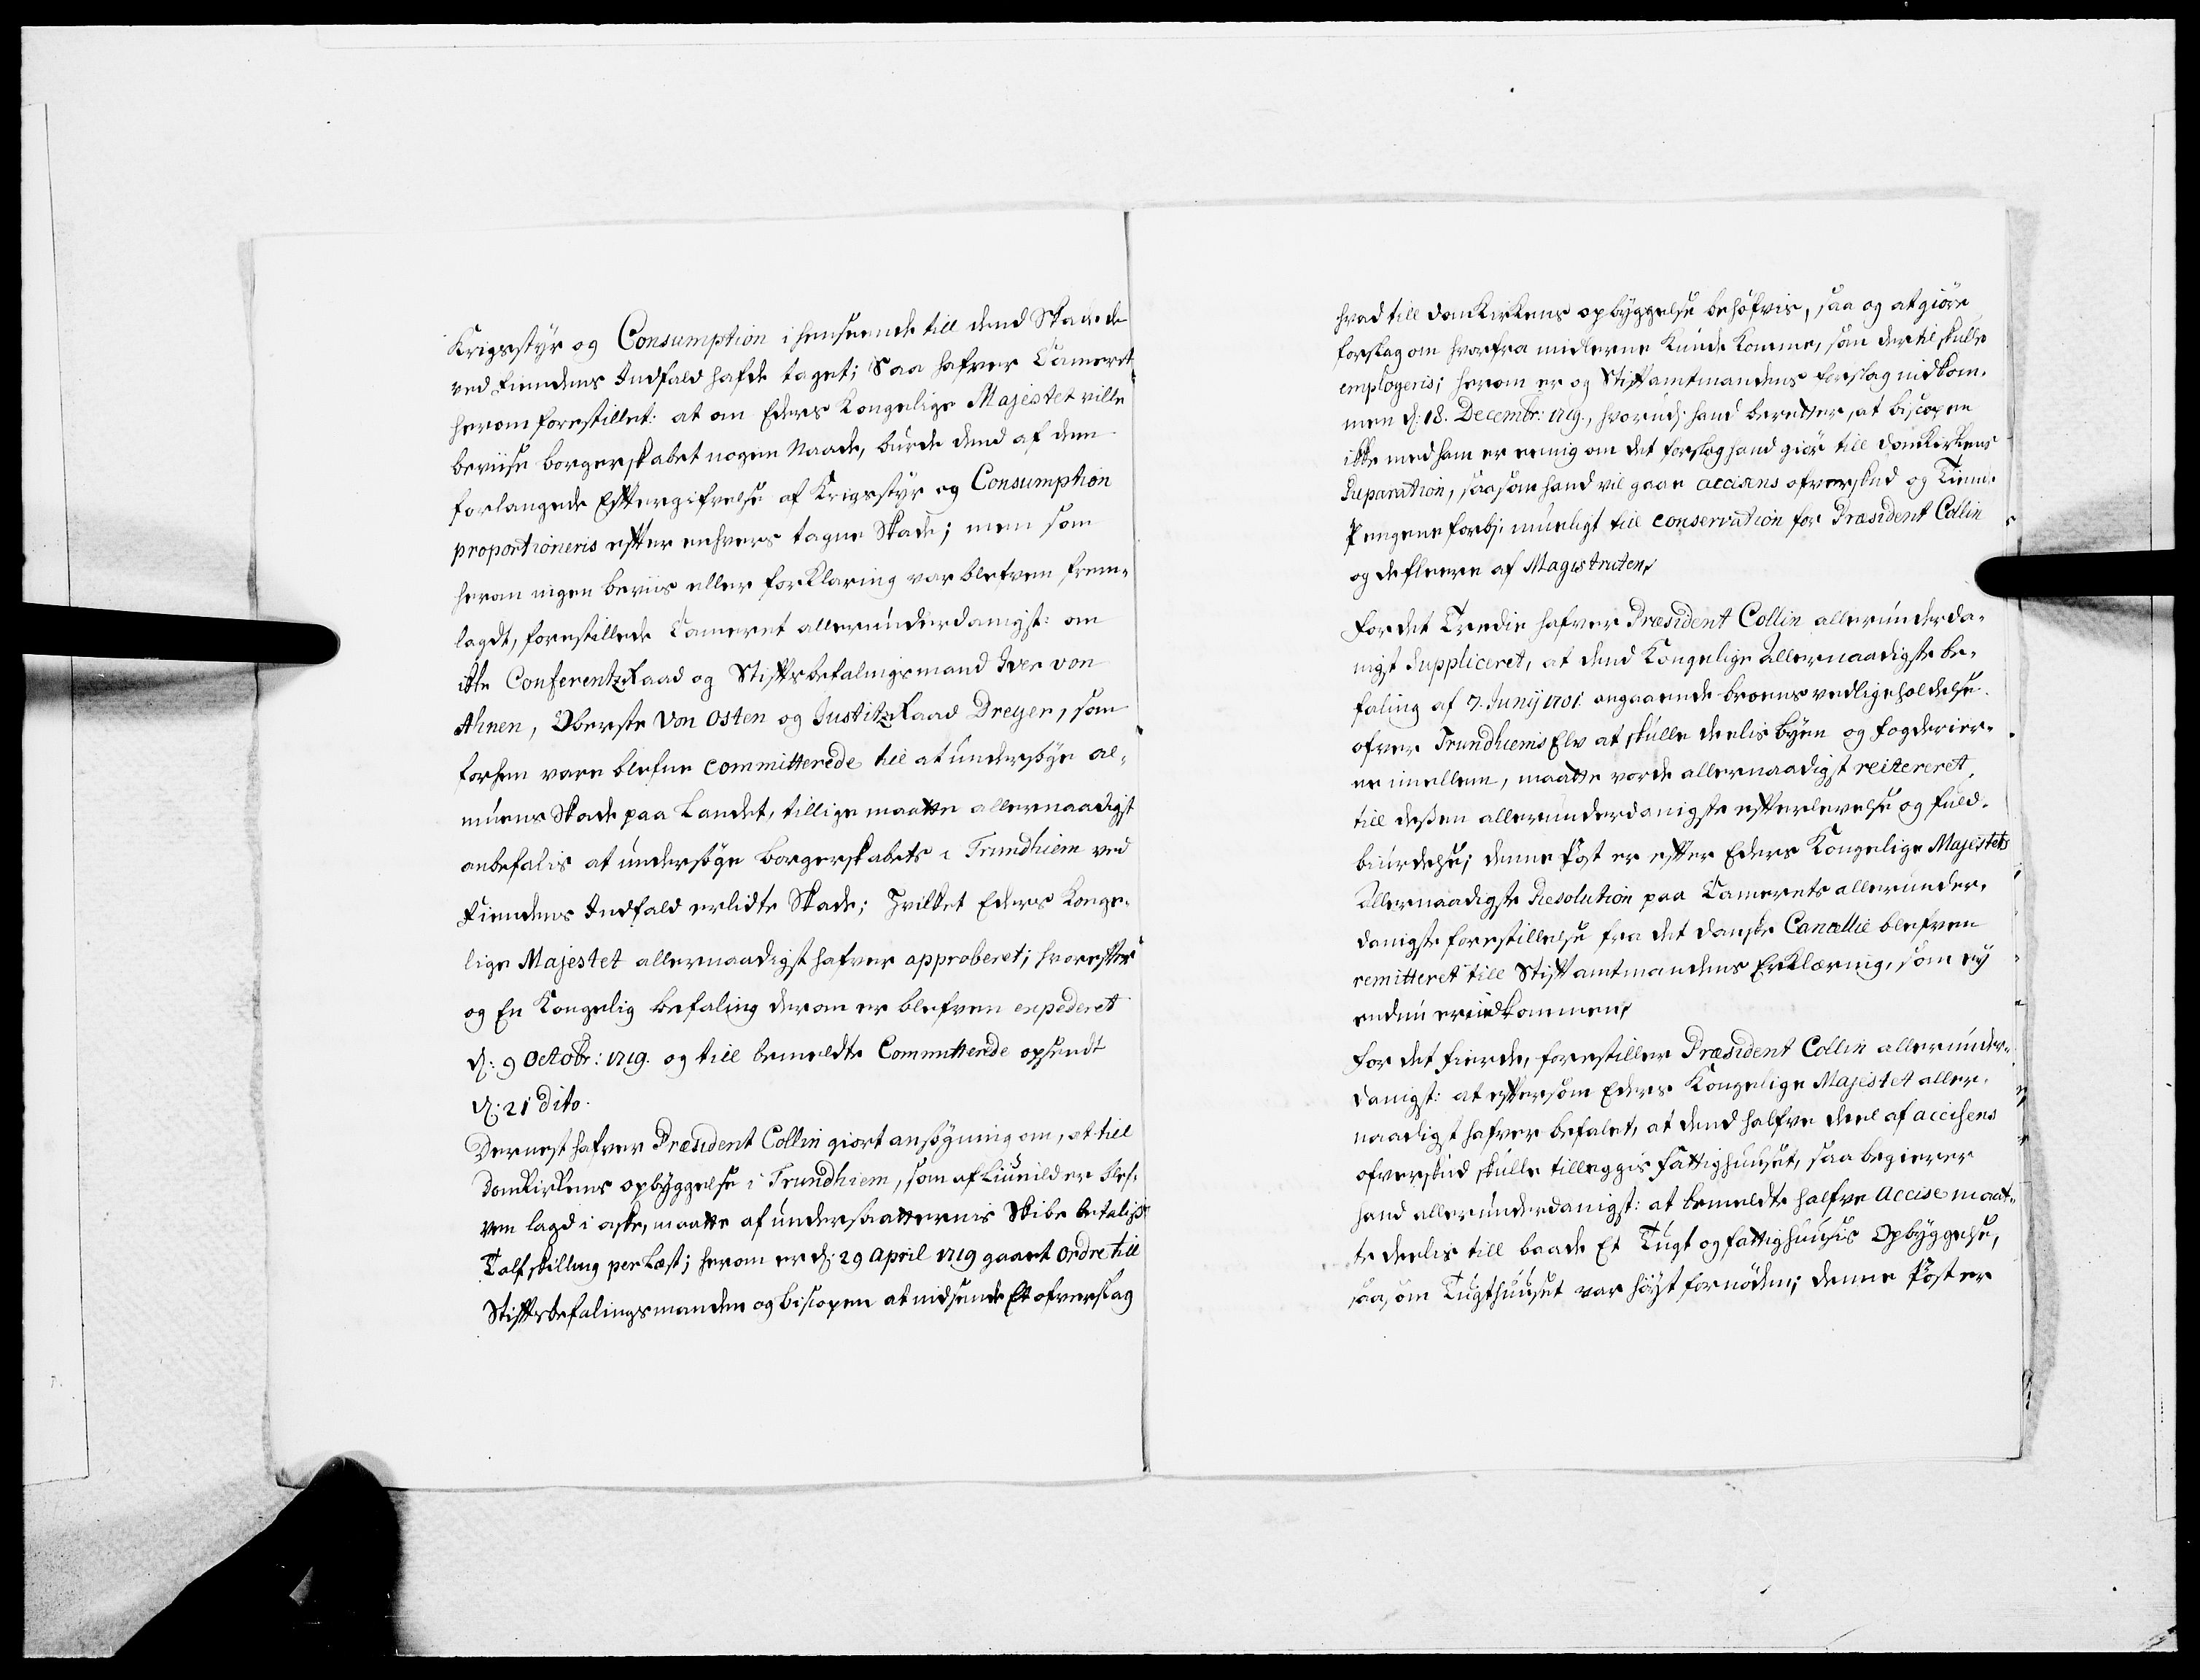 Krigsstÿr og Consumption i henseende till dend Skade de
ved fiendens Indfald hafde taget; Saa hafver Cameret
herom forestillet: at om Eders Kongelige Majestet ville
beviise borgerskabet nogen Naade, burde dend af dem
forlangede Efftergifvelse af Krigsstÿr og Consumption
proportioneris effter enhvers tagne Skade; men som
herom ingen beviis eller forklaring var blefven frem-
lagdt, forestillede Cameret allerunderdanigst: om
ikke ConferentzRaad og Stifftsbefalingsmand Iver von
Ahnen, Oberste Von Osten og JustitzRaad Dreyer, som
forhen vare blefne committerede till at undersöge al-
muens Skade paa Landet, tillige maatte allernaadigst
anbefalis at undersöge borgerskabets i Trundhiem ved
Fiendens Indfald erlidte Skade; Hvilket Eders Konge-
lige Majestet allernaadigst hafver approberet; hvoreffter
og En Kongelig befaling derom er blefven expederet
d: 9 Octobr: 1719. og till bemeldte Committerede opsendt
d: 21 dito.
Dernest hafver Præsident Collin giort ansögning om, at till
domkirkens opbyggelse i Trundhiem, som af Liunild er blef-
ven lagd i aske, maatte af undersaatternis Skibe betalis
Tolf skilling per Læst; herom er d: 29 April 1719 gaaet Ordre till
Stifftsbefalingsmanden og biscopen at indsende Et ofverslag
hvad till domkirkens opbyggelse behöfvis, saa og at giöre
forslag om hvorfra midlerne kunde komme, som dertil skulle
employeris; herom er og Stifftamtmandens forslag indkom-
men d: 18. Decembr: 1719., hvorudj hand beretter, at biscopen
ikke med ham er eenig om det forslag hand giör till domkirkens
Reparation, saasom hand vil gaae accisens ofverskud og Tiende
Pengene forbj. mueligt till conservation for Præsident Collin
og de fleere af Magistraten,
For det Tredie hafver Præsident Collin allerunderda-
nigst Suppliceret, at dend Kongelige Allernaadigste be-
faling af 7. Junij 1701 angaaende broens vedligeholdelse
ofver Trundhiems Elv at skulle deelis byen og fogderier-
ne imellem, maatte vorde allernaadigst reitereret,
till dessen allerunderdanigste effterlevelse og fuld-
biurdelse; denne Post er effter Eders Kongelige Majestets
Allernaadigste Resolution paa Camerets allerunder-
danigste forestillelse fra det danske Cancellie blefven
remitteret till Stifftamtmandens Erklæring, som ej
endnu er indkommen,
For det fierde, forestiller Præsident Collin allerunder-
danigst: at efftersom Eders Kongelige Majestet aller-
naadigst hafver befalet, at dend halfve deel af accisens
ofverskud skulle tilleggis fattighuuset, saa begierer
hand allerunderdanigst: at bemeldte halfve Accise maat-
te deelis till baade Et Tugt og fattighuusis Opbyggelse,
saasom Tugthuuset var höyst fornöden; denne Post er